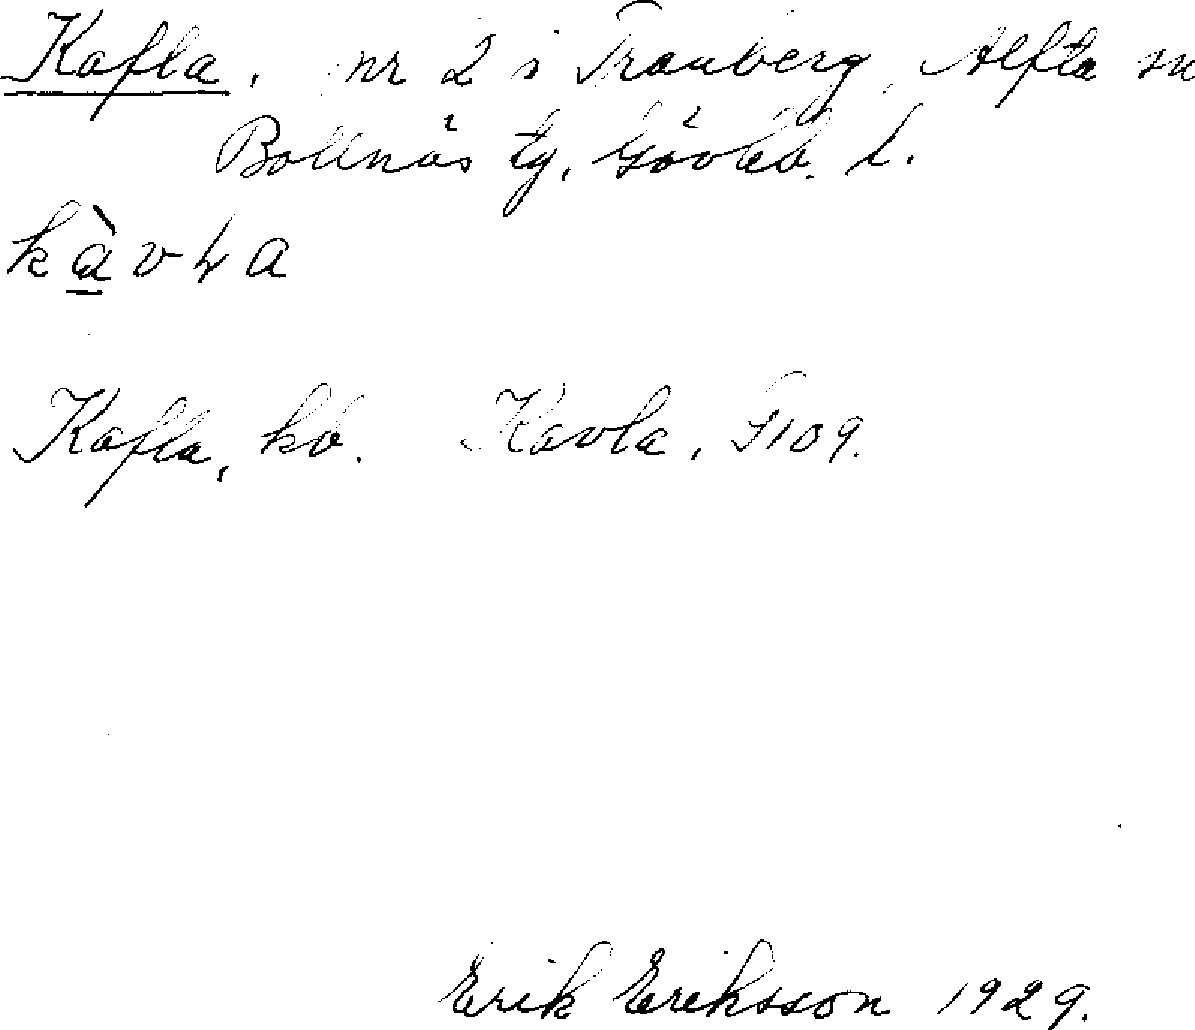 Kafla, nr 2 i Tranberg, Alfta sn
Bollnäs tg, Gävleb. l.
kàvła
Kafla, kb. Kavla, F109.
Erik Eriksson 1929.